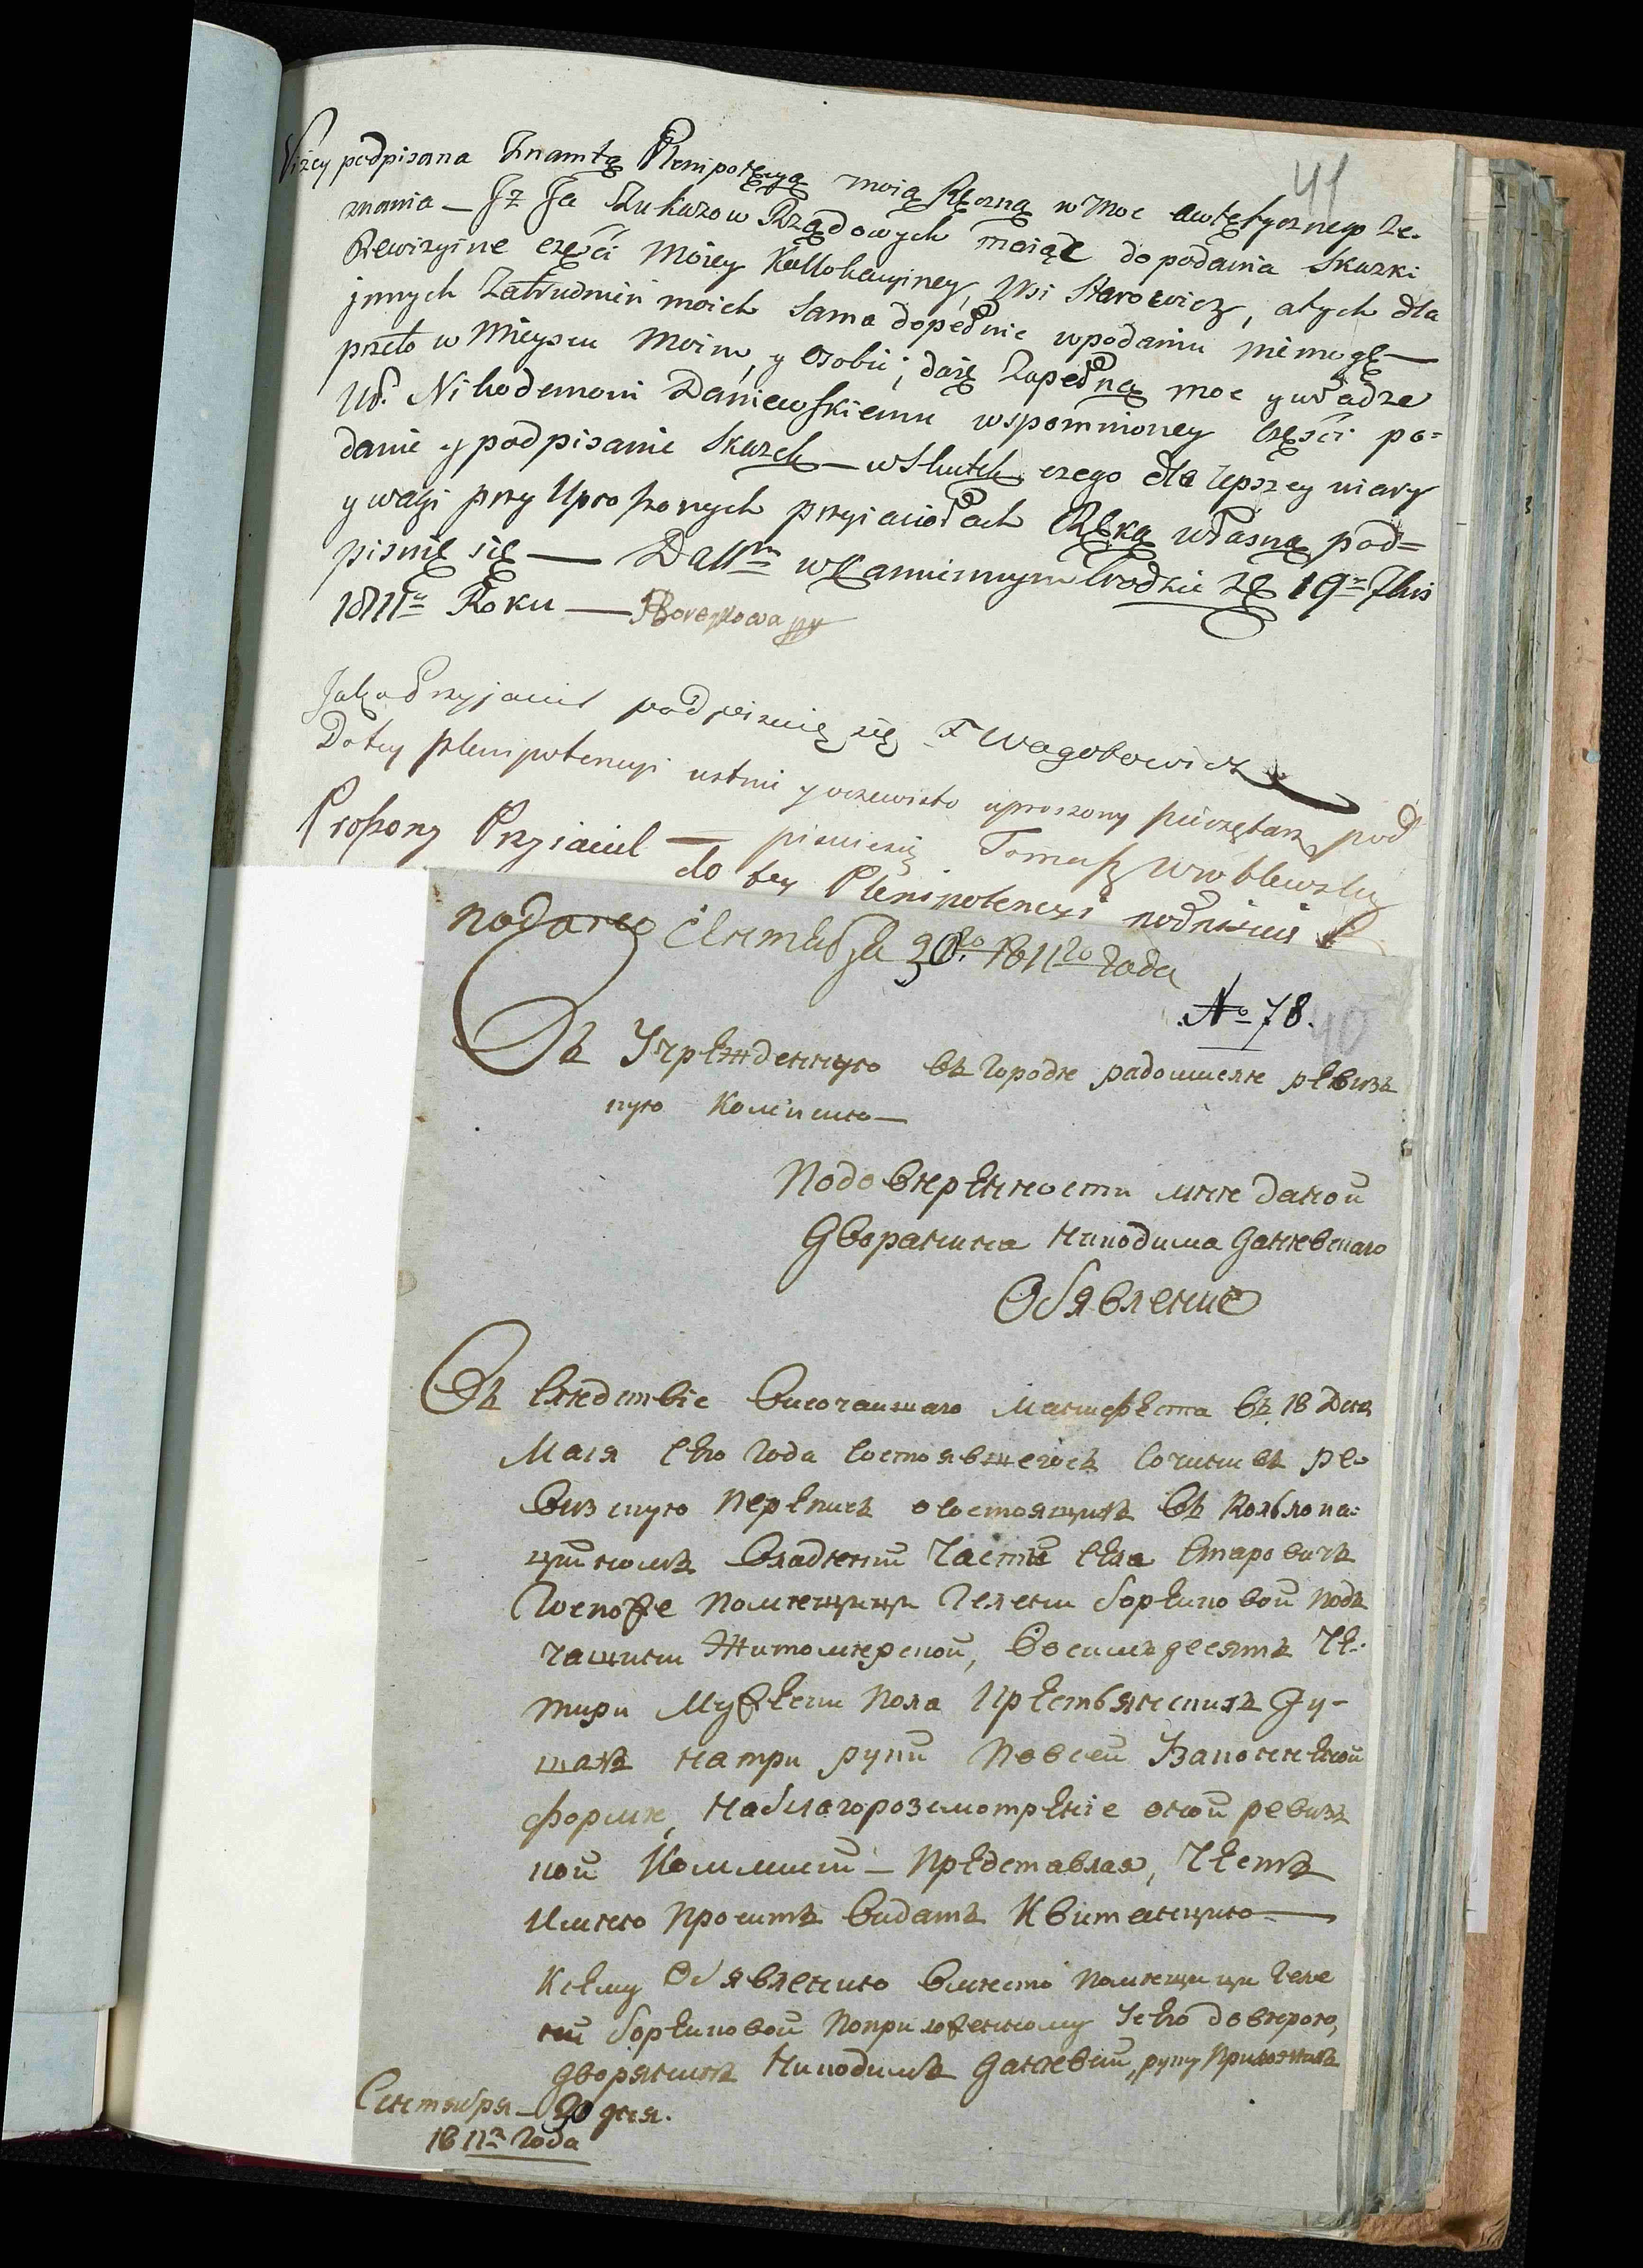 41
Niżey podpisana znamtą Plenipotęcyą moią Ręczną w Moc awtętycznego Ze-
znania — Jż Ja Zukazow Rządowych maiąc do podania Skazki
Rewizyine części Moiey Kollokacyiney, Wsi Starowicz, atych dla
jnnych Zatrudnień moich sama dopełnic wpodaniu niemogę —
przeto w Mieyscu Moim, y osobie, daię Zupełną moc y władze
W. Nikodemowi Daniewskiemu wspomnioney części po=
danie y podpisanie Skazek — wSkutek czego dla lepszey wiary
y wagi przy Uproszonych przyiaciołach Ręką własną pod=
pisuię się — Datt w Kamiennym Brodzie 19 7bris
1811 Roku — Boreykowa
Jako Przyjaciel podpisuię się F Wagotowicz
Do tey plenipotencyi ustnie y oczewisto uproszony pieczętarz pod
pisuiesię Tomasz Wroblewsky
Proszony Przyiaciel — do tey Plenipotencyi podpisuie
подано Сентября 30го 1811го года
№ 78.
40
Въ Учрежденную въ городе радомисле ревиз
ную Комисию —
Подоверенности мне даной
Дворанина Никодима Даневскаго
Обявление
Въ следствіе Височаишаго Манифеста въ 18 День
Маія сего года состоявшегось сочинивъ ре-
визкую перепись осостоящихъ въ Колълока-
цийномъ владении части села Старовичъ
Госпоже помещици Гелени Борейковой Подъ
чашини Житомерской, восимъдесятъ че-
тири мужески пола крестьянскихъ ду-
шахъ натри руки повсей Узаконненой
форме, наблагоразсмотреніе оной ревиз
кой Коммисии — представлая, честь
имею просить видать Квитанцию —
Ксему Обявлению вместо помещици Геле
ни Борейковой поприложенному усего доверою,
дворянинъ Никодимъ Даневски, руку приложилъ
Сентября — 30 дня.
1811 года